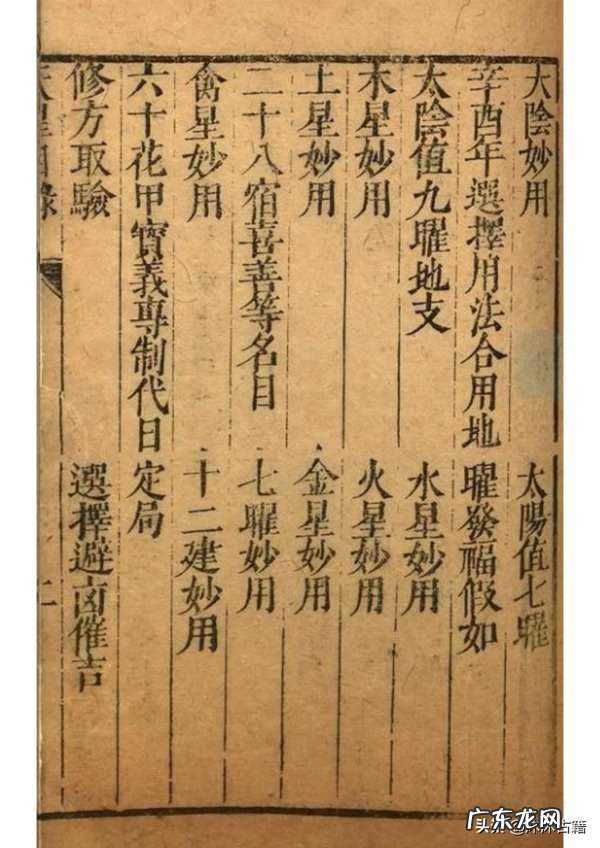 太陰妙用 太陽值七曜
辛酉年選擇用法合用地曜發福假如
太陰值九曜地支 水星妙用
木星妙用 火星妙用
土星妙用 金星妙用
二十八宿喜善等名目 七曜妙用
禽星妙用 十二建妙用
六十花甲寶義專制代日定局
修方取驗 選擇避凶催吉
天星目錄 二
广东龙网
头条
古籍